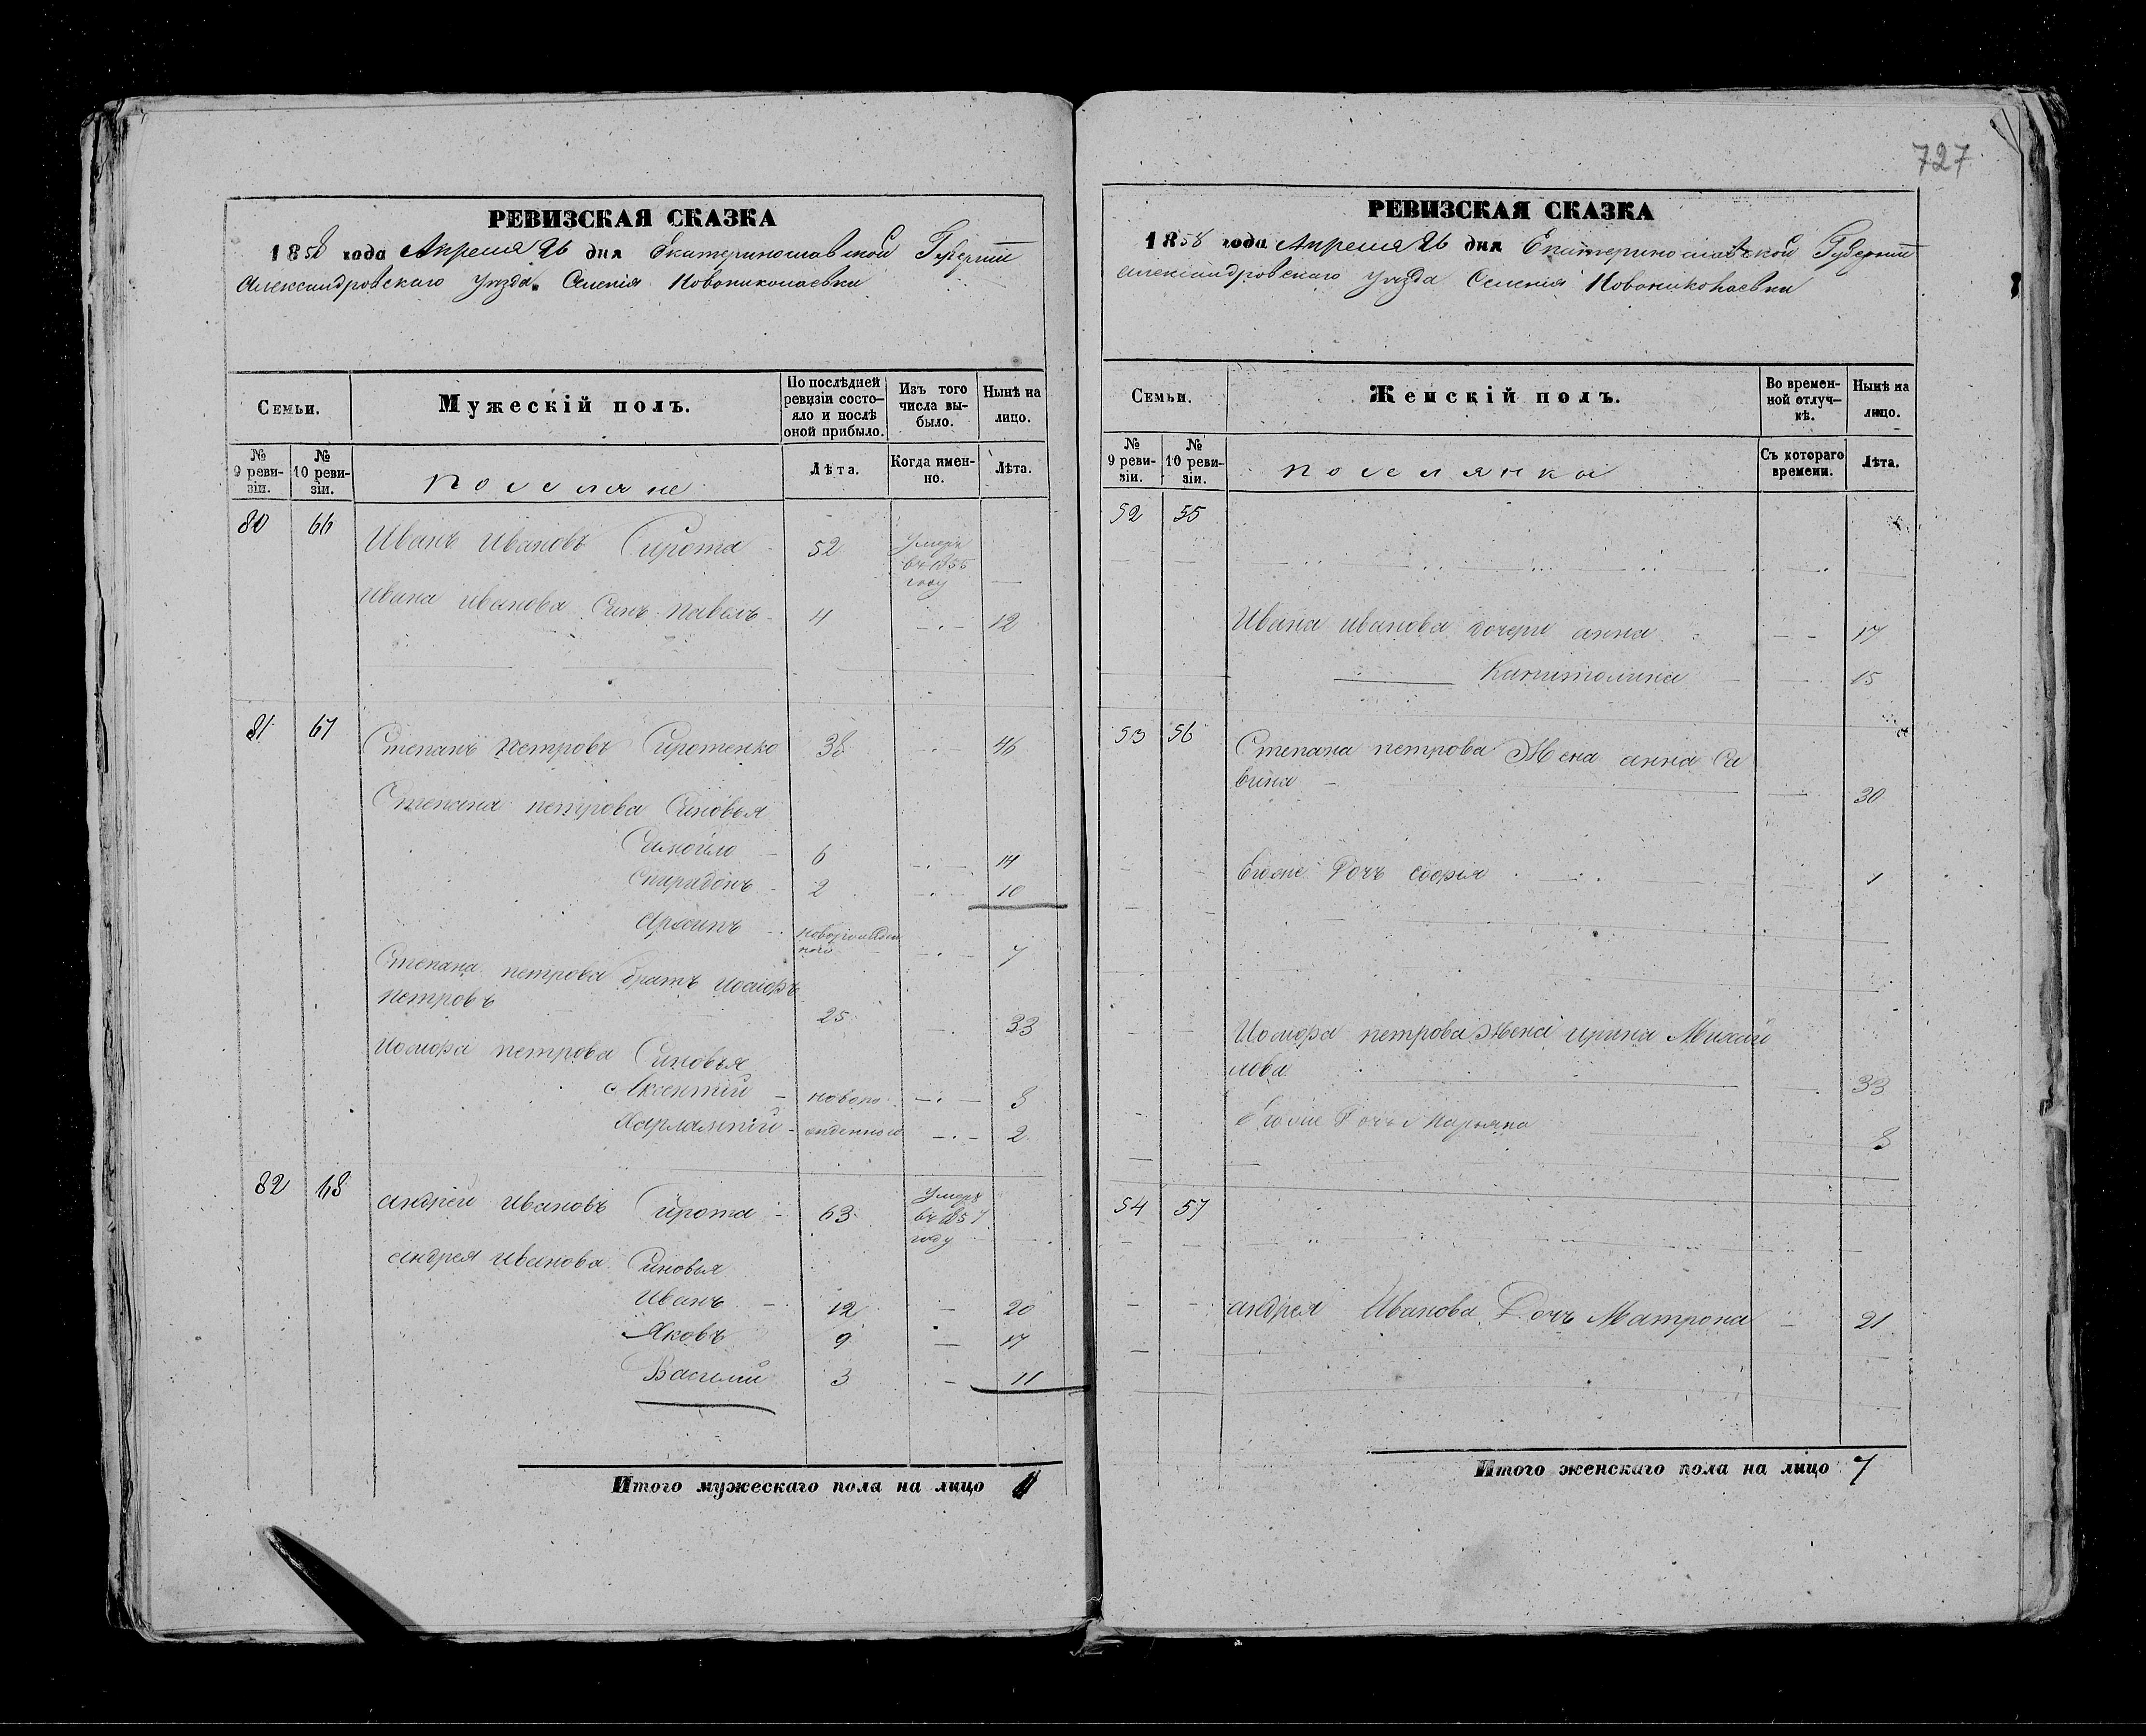 727
РЕВИЗСКАЯ СКАЗКА
1858 года Апреля 26 дня Екатеринославской Губерніи
Александровскаго Уѣзда Селенія Новониколаевки
Семьи.
Мужескій полъ.
По послѣдней ревизіи состояло и послѣ оной прибыло.
Изъ того числа выбыло.
Нынѣ на лицо.
№ 9 ревизіи.
№ 10 ревизіи.
Поселяне
Лѣта.
Когда именно.
Лѣта.
80 66 Иванъ Ивановъ Сирота 52 Умеръ въ 1855 году
Ивана Иванова Сынъ Павелъ 4 12
81 67 Степанъ Петровъ Сиротенко 38 46
Степана Петрова Сыновья
Самойло 6 14
Спиридонъ 2 10
7
Степана Петрова братъ Иосифъ
Петровъ 25 33
Иосифа Петрова Сыновья
Аксентій 8
Харлампій 2
82 68 Андрей Ивановъ Сирота 63 Умеръ въ 1857 году
Андрея Иванова Сыновья
Иванъ 12 20
Яковъ 9 17
Василий 3 11
Итого мужескаго пола на лицо 11
РЕВИЗСКАЯ СКАЗКА
1858 года Апреля 26 дня Екатеринославской Губерніи
Александровскаго Уѣзда Селенія Новониколаевки
Семьи.
Женскій полъ.
Во временной отлучкѣ.
Нынѣ на лицо.
№ 9 ревизіи.
№ 10 ревизіи.
Поселянки
Съ котораго времени.
Лѣта.
52 55
Ивана Иванова дочери Анна 17
Капитолина 15
53 56 Степана Петрова Жена Анна Са
вина 30
Егоже Дочь Софья 1
Иосифа Петрова Жена Ирина Михай
лова 33
Егоже Дочь Марьяна 8
54 57
Андрея Иванова Дочь Матрона 21
Итого женскаго пола на лицо 7